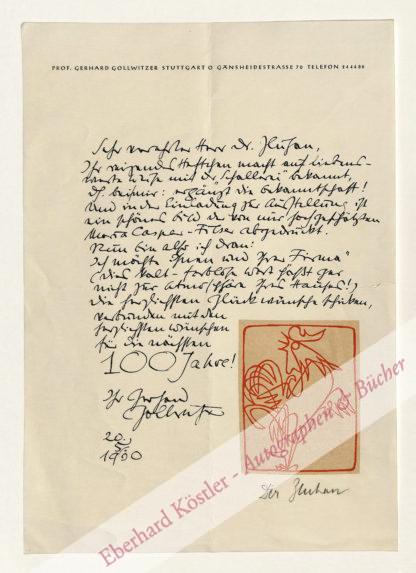 PROF. GERHARD GOLLWITZER STUTTGART O GÄNSHEIDESTRASSE 70 TELEFON 244480
Sehr verehrter Herr Dr. 
Ihr reizendes Heftchen macht auf liebens-
werte Weise mit Dr. Schallerei bekannt,
d.h. bei mir: ergänzt die Bekanntschaft!
Und in der Einladung zur Ausstellung ist
ein schönes Bild der von mir hochgeschätzten
Maria Caspar-Filser abgedruckt.
Nun bin also ich dran:
Ich möchte Ihnen und Ihrer "Firma"
(dies kalt-farblose Wort paßt gar
nicht zur Atmosphäre Ihres Hauses!)
die herzlichsten Glückwünsche schicken,
verbunden mit den
herzlichsten Wünschen
für die nächsten
100 Jahre!
Ihr Gerhard
Gollwitzer
20.
1960
Der
Eberhard Köstler - Autographen & Bücher